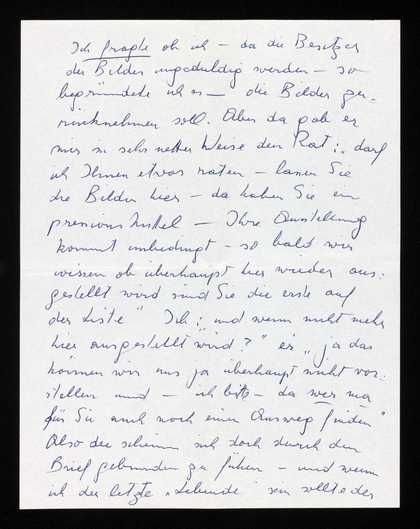 Ich fragte ob ich – da die Besitzer
der Bilder ungeduldig werden – so
begründete ich es – die Bilder zu-
rücknehmen soll. Aber da gab er
mir in sehr netter Weise den Rat: „darf
ich Ihnen etwas raten – lassen Sie
die Bilder hier – da haben Sie ein
pressions Mittel – Ihre Ausstellung
kommt unbedingt – so bald wir
wissen ob überhaupt hier wieder aus-
gestellt wird sind Sie die erste auf
der Liste“ Ich: „und wenn nicht mehr
hier ausgestellt wird?“ er „ja das
können wir uns ja überhaupt nicht vor-
stellen und – ich bitte – da
für Sie auch noch einen Ausweg finden“
Also die scheinen sich doch durch den
Brief gebunden zu fühlen – und wenn
ich der letzte „Lebende“ sein sollte der